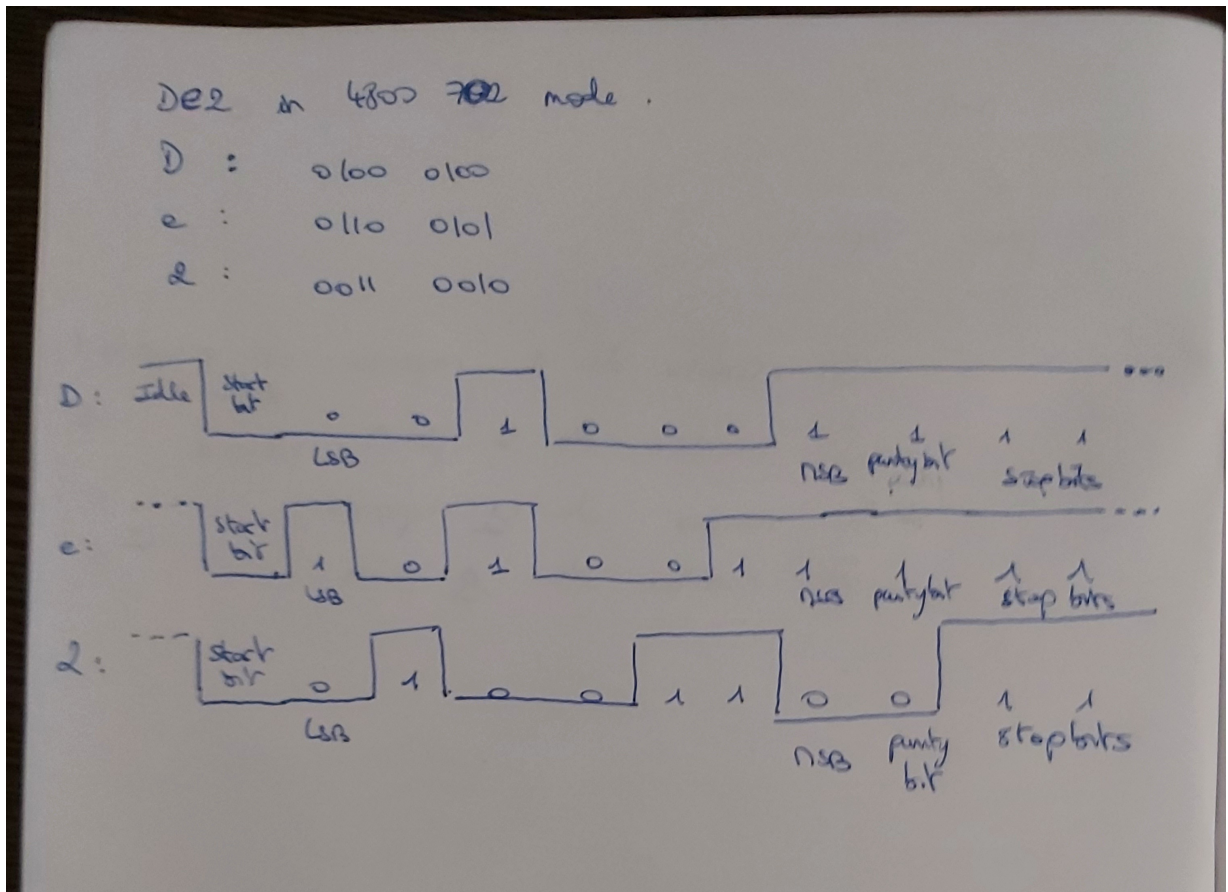 De2 in 4800 702 mode.
D : 0100 0100
e : 0110 0101
2 : 0011 0010
D: Idle start bit 0 0 1 0 0 0 1 1 1 1
LSB MSB parity bit stop bits
e: start bit 1 0 1 0 0 1 1 1 1 1
LSB MSB parity bit stop bits
2: start bit 0 1 0 0 1 1 0 0 1 1
LSB MSB parity bit stop bits